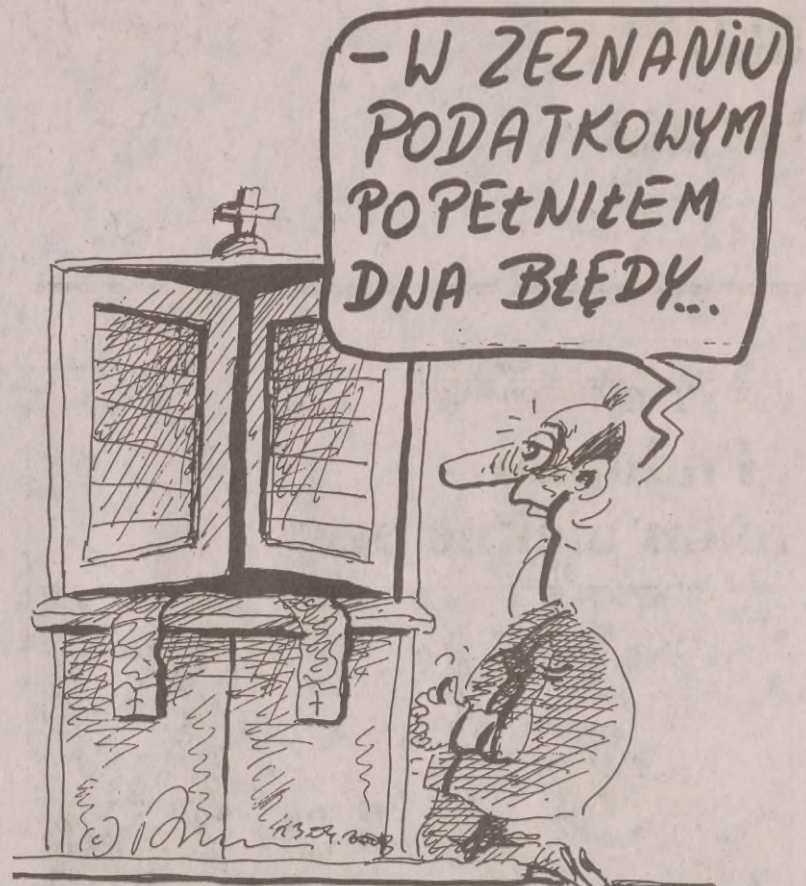 - W ZEZNANIU
PODATKOWYM
POPEŁNIŁEM
DWA BŁĘDY...